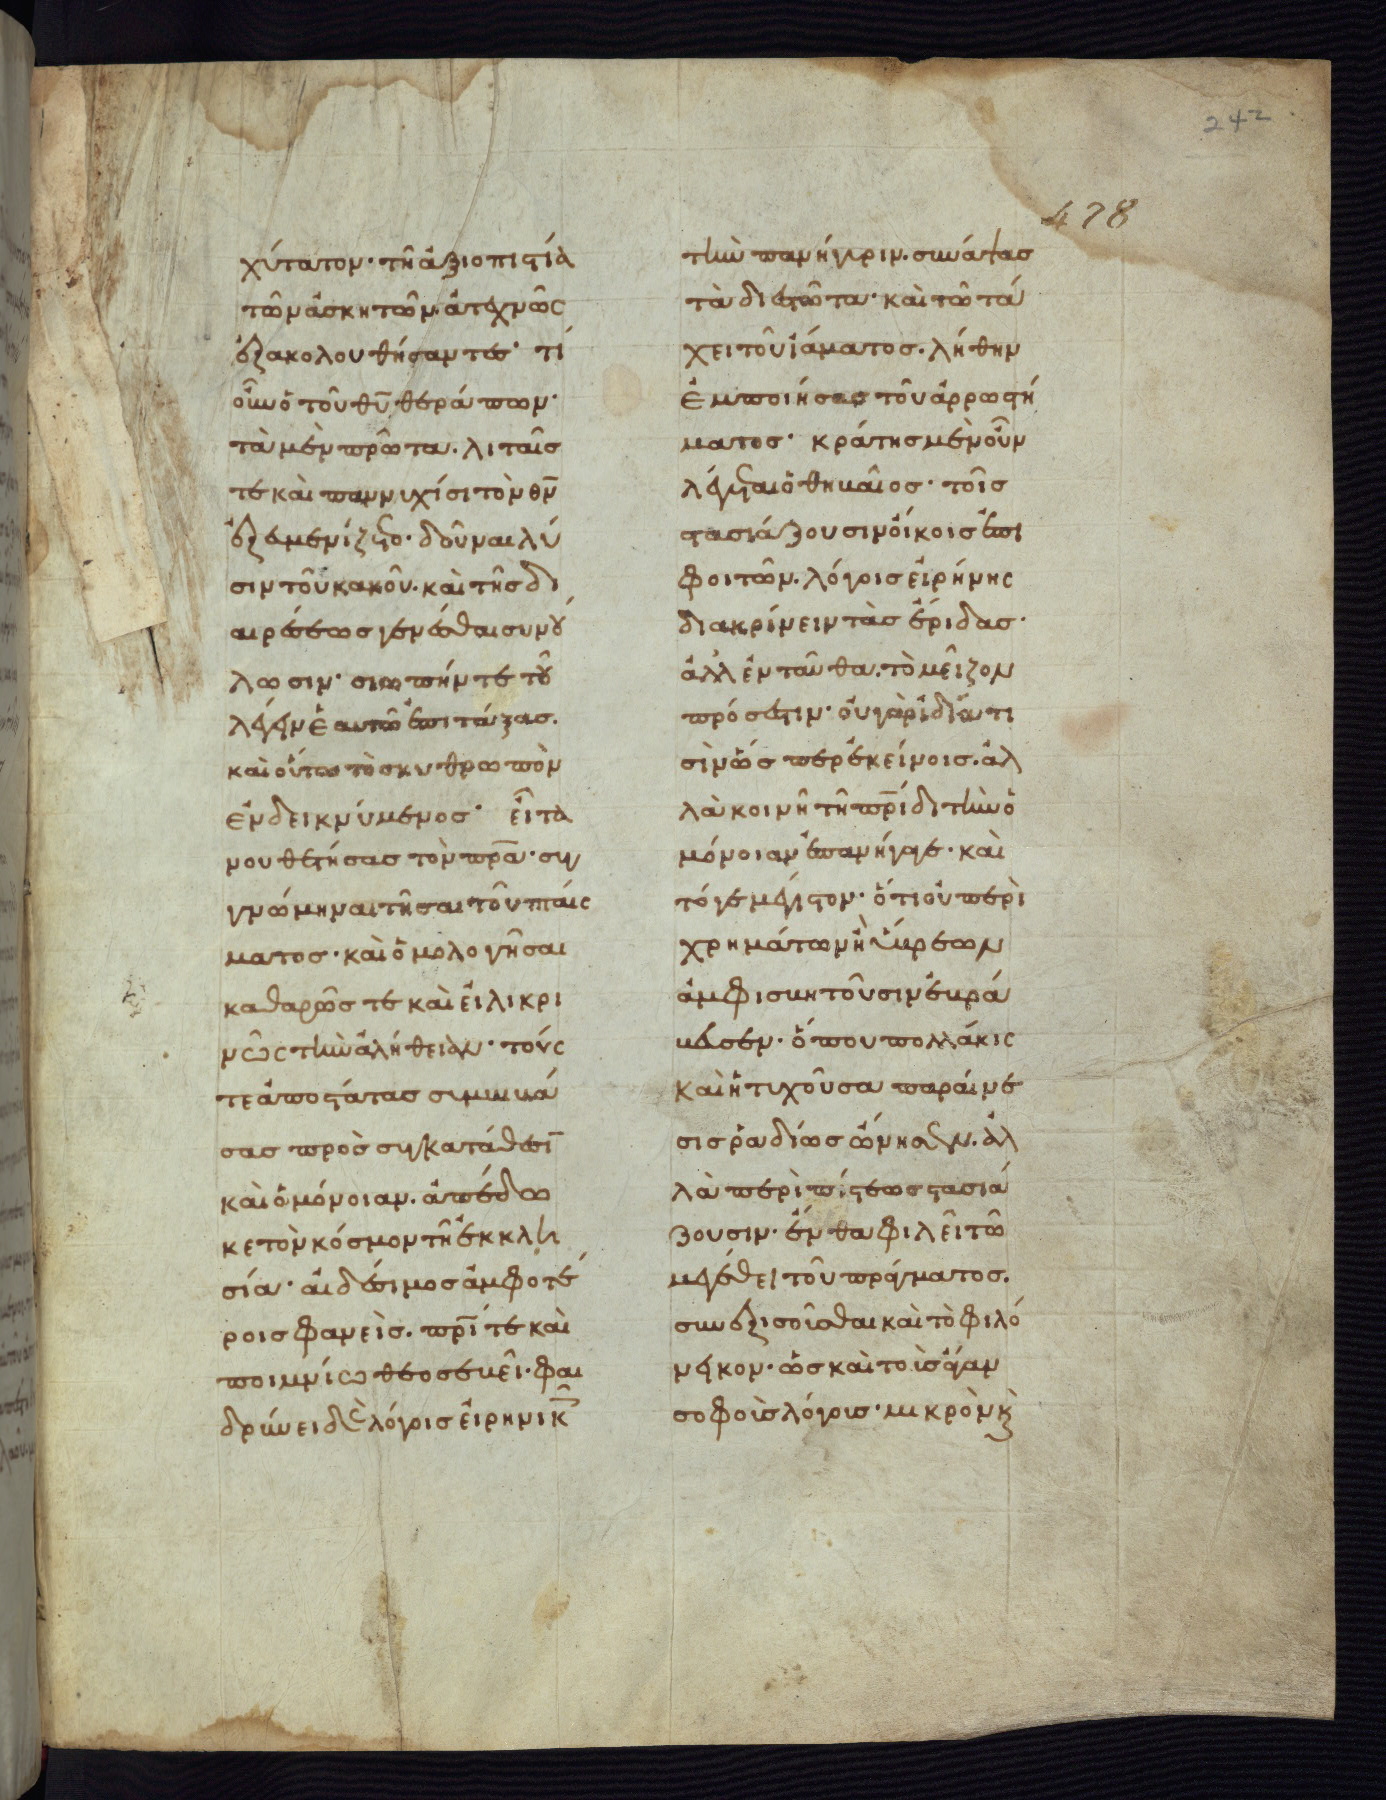 242
478
χύτατον· τῆ ἀξιοπιστία
τῶν ἀσκητῶν· ἀτεχνῶς
ἐξακολουθήσαντες· τί
οὖν ὁ τοῦ θυ̅ θεράπων·
τὰ μὲν πρῶτα· λιταῖς
τὲ καὶ παννυχίσι τὸν θν̅
ἐξευμενίζετο· δοῦναι λύ
σιν τοῦ κακοῦ· καὶ τῆς δι
αιρέσεως γενέσθαι συνού
λωσιν· σιωπήν τε τοῦ
λέγειν ἑαυτῶ ἐπιτάξας·
καὶ οὕτω τὸ σκυθρωπὸν
ἐνδεικνύμενος· εἶτα
νουθετήσας τὸν πρ̅α· συγ
γνώμην αἰτῆσαι τοῦ πταίς
ματος· καὶ ὁμολογῆσαι
καθαρῶς τὲ καὶ εἰλικρι
νῶς τὴν ἀλήθειαν· τούς
τε ἀποστάτας συμβιβά
σας πρὸς συγκατάθεσι̅
καὶ ὁμόνοιαν· ἀπέδω
κε τὸν κόσμον τῆ ἐκκλη
σία· αἰδέσιμος ἀμφοτέ
ροις φανεὶς· πρ̅ί τὲ καὶ
ποιμνίω θεοσεβεῖ· φαι
δρύνει δὲ λόγοις εἰρηνικ
τὴν πανήγυριν· συνάψας
τὰ διεστῶτα· καὶ τῶ τά
χει τοῦ ἰάματος· λήθην
ἐμποιήσας τοῦ ἀρρωστή
ματος· κράτης μὲν οὖν
λέγεται ὁ θηβαῖος· τοῖς
στασιάζουσιν οἴκοις ἐπι
φοιτῶν· λόγοις εἰρήνης
διακρίνειν τὰς ἔριδας·
ἀλλ ἐνταῦθα· τὸ μεῖζον
πρόσεστιν· οὐ γὰρ ἰδία τι
σὶν ὥσπερ ἐκείνοις· ἀλ
λὰ κοινῆ τῆ πρ̅ίδι τὴν ὁ
μόνοιαν ἐπανήγαγε· καὶ
τόγε μέγιστον· ὅτι οὐ περὶ
χρημάτων ἢ ὕβρεων
ἀμφισβητοῦσιν ἐβρά
βευσεν· ὅπου πολλάκις
καὶ ἡ τυχοῦσα παραίνε
σις ῥαδίως ὤνησεν· ἀλ
λὰ περὶ πίστεως στασιά
ζουσιν· ἔνθα φιλεῖ τῶ
μεγέθει τοῦ πράγματος·
συνεξισοῦσθαι καὶ τὸ φιλό
νεικον· ὡς καὶ τοῖς ἄγαν
σοφοῖς λόγοις· μικρὸν κ